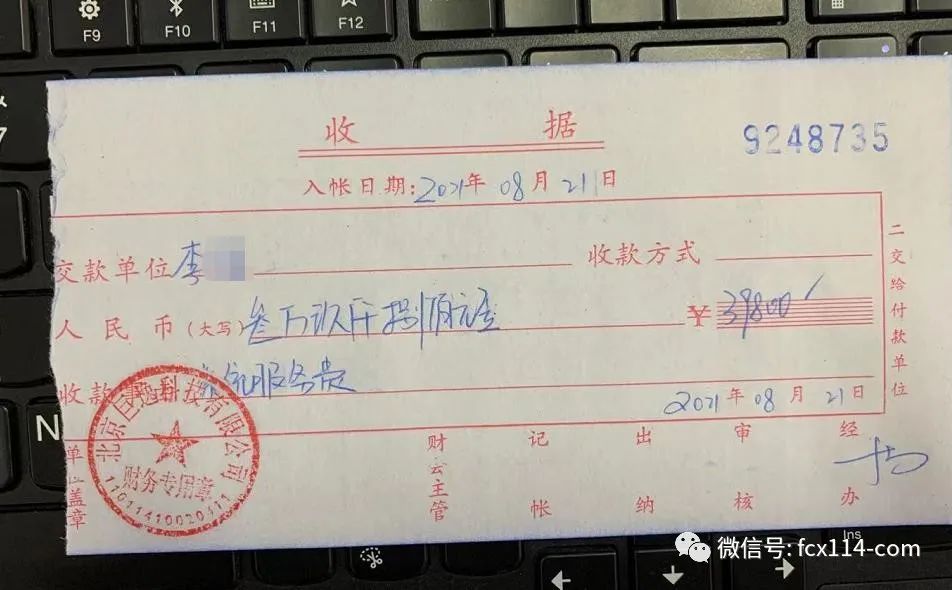 F9 F10 F11 F12
收 据
9248735
入帐日期: 2021年 08月 21日
交款单位 李
收款方式
人民币(大写) 叁万玖仟捌佰元整
¥ 39800
收款 服务费
2021年 08月 21日
二交给付款单位
单位盖章
财会主管
记帐
出纳
审核
经办
北京 科技有限公司
财务专用章
N
Ins
微信号: fcx114-com